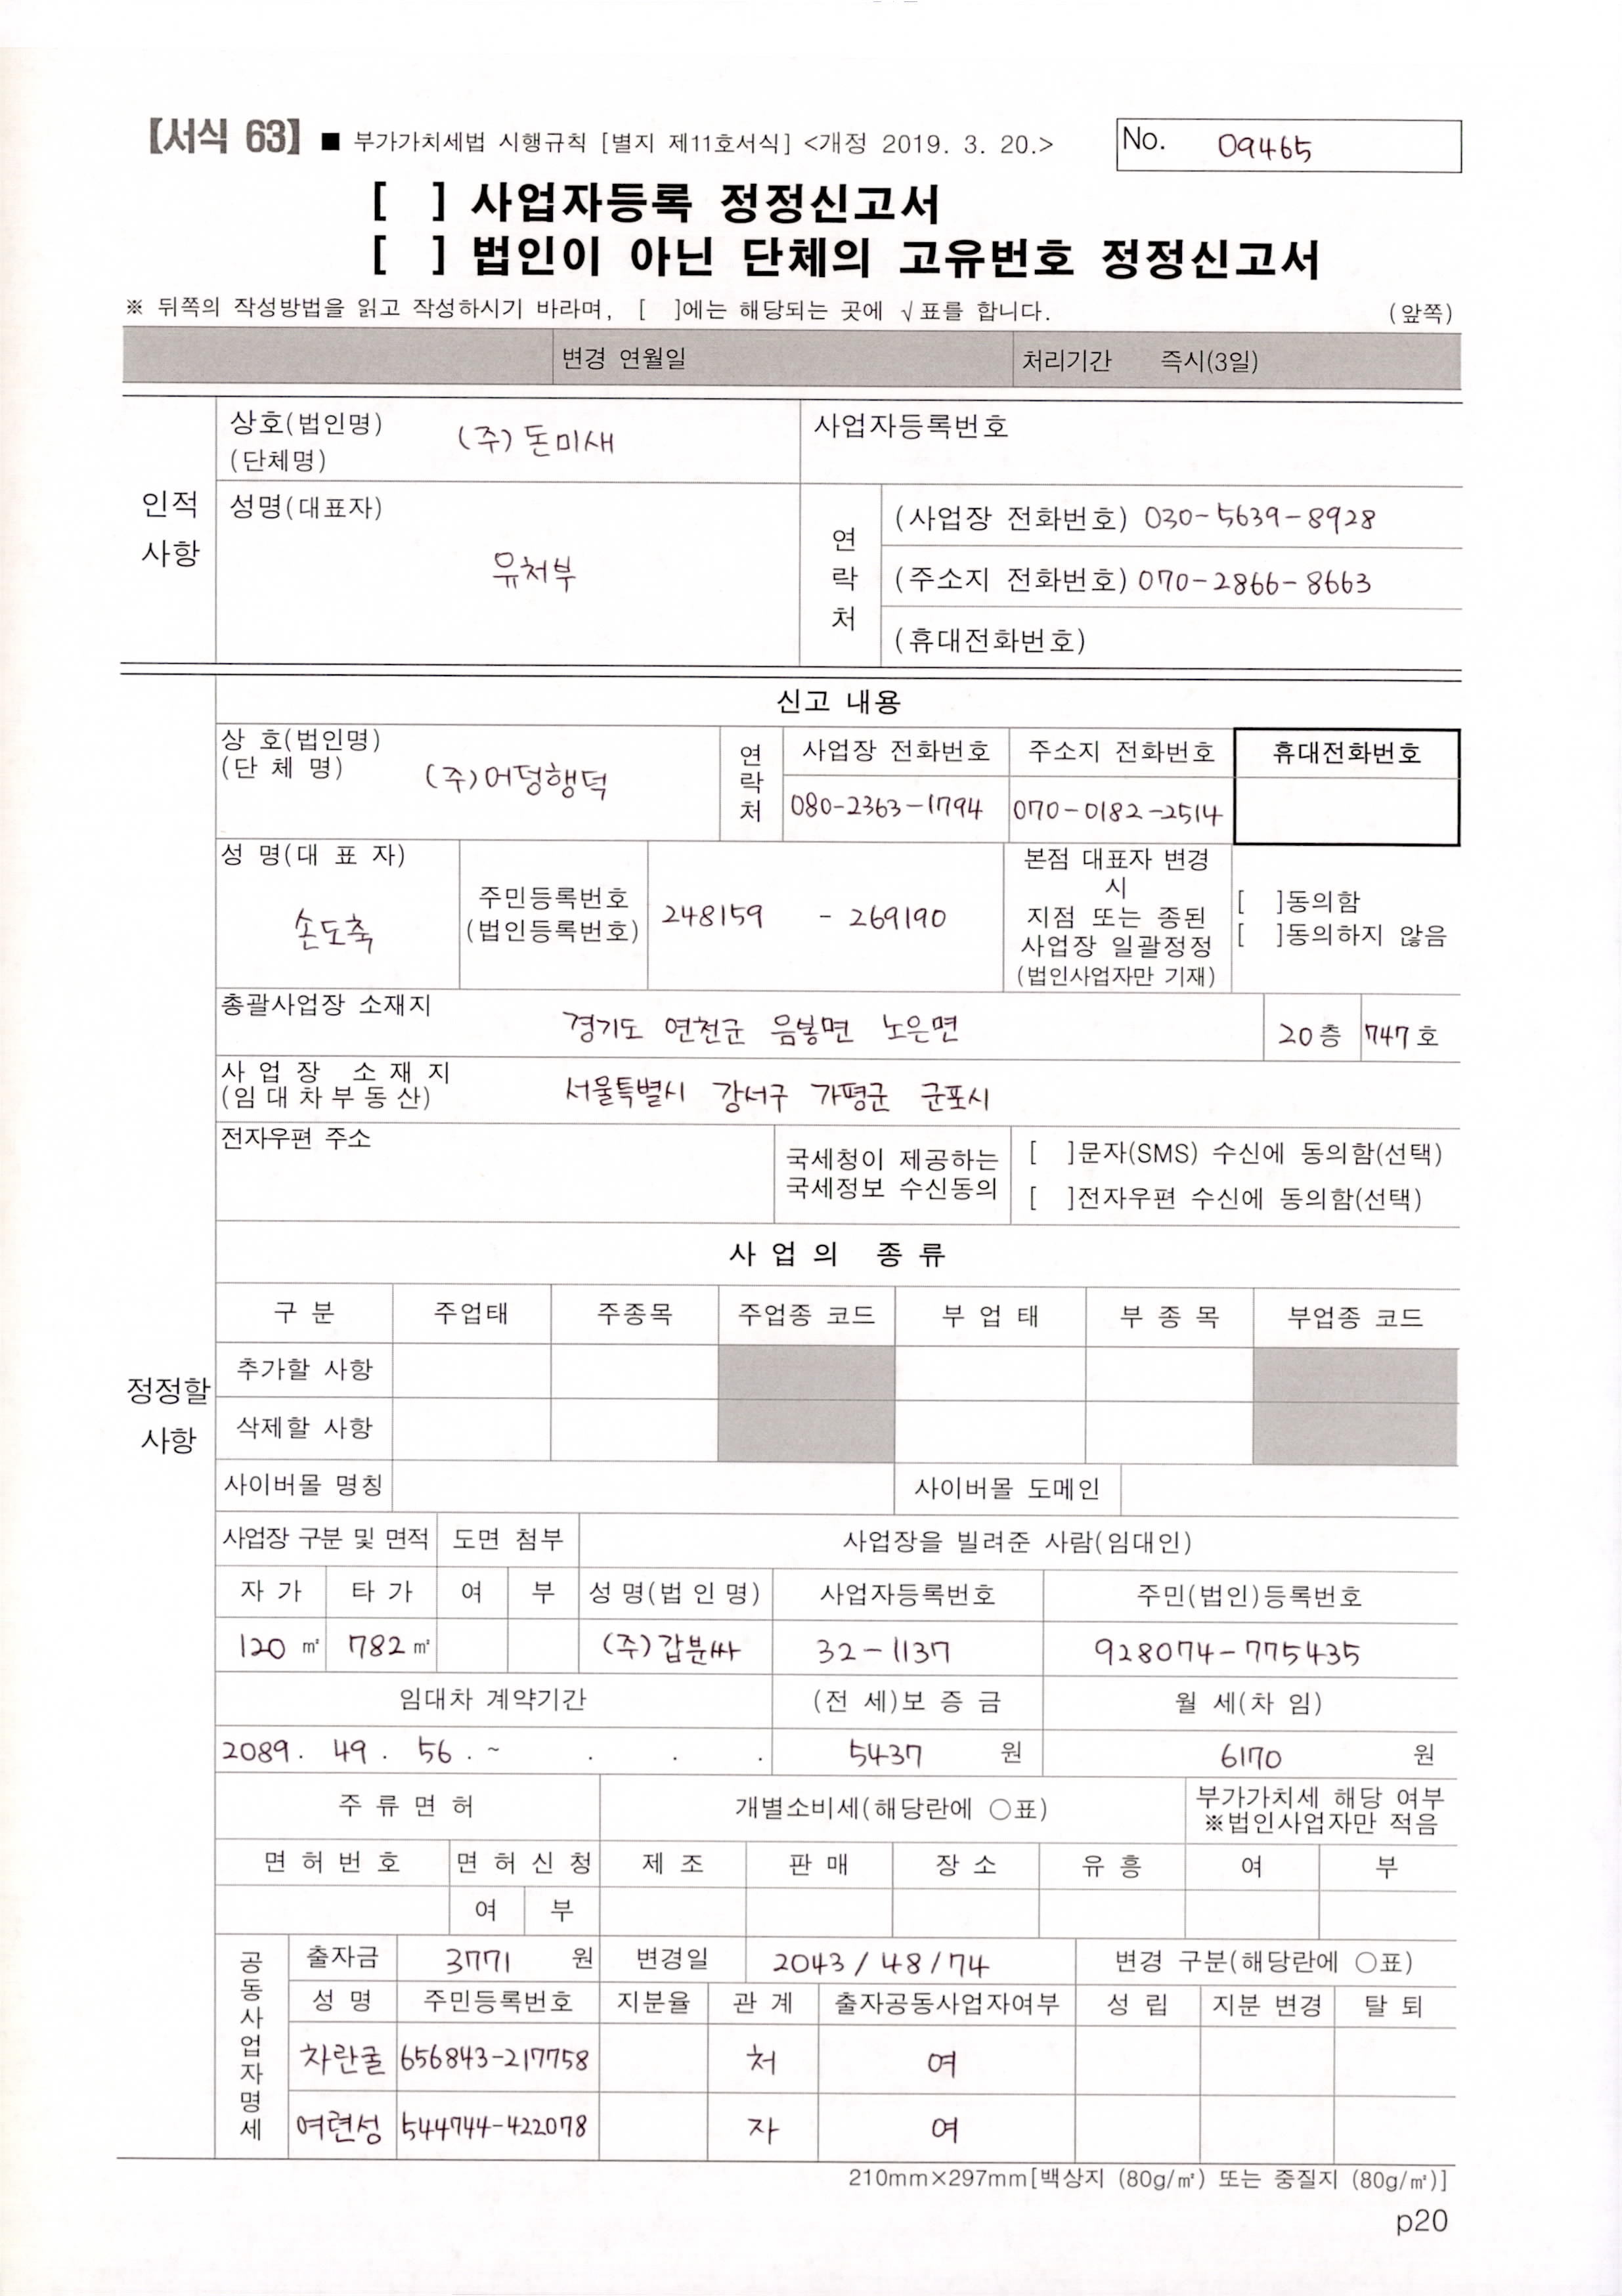 【서식 63】 ■ 부가가치세법 시행규칙 [별지 제11호서식] <개정 2019. 3. 20.>
No. 09465
[ ] 사업자등록 정정신고서
[ ] 법인이 아닌 단체의 고유번호 정정신고서
※ 뒤쪽의 작성방법을 읽고 작성하시기 바라며, [ ]에는 해당되는 곳에 √표를 합니다. (앞쪽)
변경 연월일 처리기간 즉시(3일)
인적 사항
상호(법인명) (단체명) (주)돈미새 사업자등록번호
성명(대표자) 유처부
연락처
(사업장 전화번호) 030-5639-8928
(주소지 전화번호) 070-2866-8663
(휴대전화번호)
정정할 사항
신고 내용
상 호(법인명) (단 체 명) (주)어덩행덕
연락처 사업장 전화번호 주소지 전화번호 휴대전화번호
080-2363-1794 070-0182-2514
성 명(대 표 자) 손도축
주민등록번호 (법인등록번호) 248159 - 269190
본점 대표자 변경
시
지점 또는 종된
사업장 일괄정정
(법인사업자만 기재)
[ ]동의함
[ ]동의하지 않음
총괄사업장 소재지 경기도 연천군 음봉면 노은면 20층 747호
사 업 장 소 재 지
(임 대 차 부 동 산) 서울특별시 강서구 가평군 군포시
전자우편 주소
국세청이 제공하는
국세정보 수신동의
[ ]문자(SMS) 수신에 동의함(선택)
[ ]전자우편 수신에 동의함(선택)
사 업 의 종 류
구 분 주업태 주종목 주업종 코드 부 업 태 부 종 목 부업종 코드
추가할 사항
삭제할 사항
사이버몰 명칭 사이버몰 도메인
사업장 구분 및 면적 도면 첨부 사업장을 빌려준 사람(임대인)
자 가 타 가 여 부 성 명(법 인 명) 사업자등록번호 주민(법인)등록번호
120 ㎡ 782 ㎡ (주)갑분싸 32-1137 928074-775435
임대차 계약기간 (전 세)보 증 금 월 세(차 임)
2089. 49. 56. ~ . . . 5437 원 6170 원
주 류 면 허 개별소비세(해당란에 ○표) 부가가치세 해당 여부
※법인사업자만 적음
면 허 번 호 면 허 신 청 제 조 판 매 장 소 유 흥 여 부
여 부
공동사업자명세
출자금 3771 원 변경일 2043/48/74 변경 구분(해당란에 ○표)
성 명 주민등록번호 지분율 관 계 출자공동사업자여부 성 립 지분 변경 탈 퇴
차란굴 656843-217758 처 여
여련성 544744-422078 자 여
210mm×297mm[백상지 (80g/㎡) 또는 중질지 (80g/㎡)]
p20